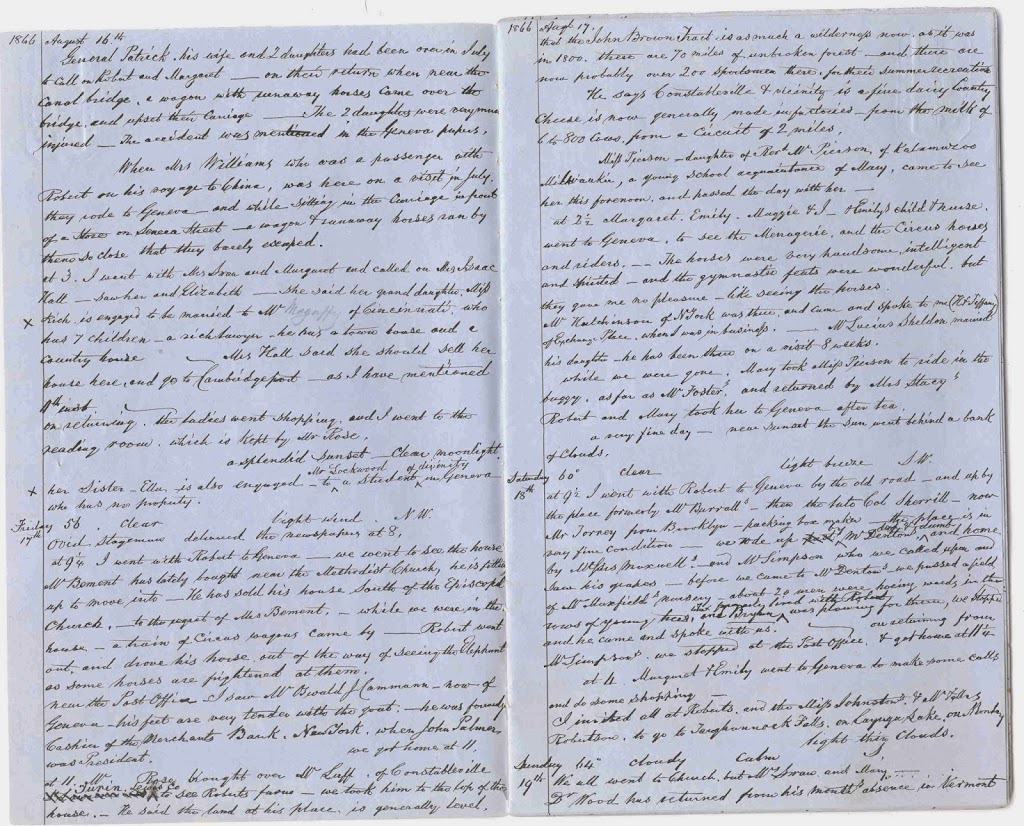 1866 August 16th
General Patrick, his wife and 2 daughters had been over in July
to call on Robert and Margaret — on their return when near the
Canal bridge, a wagon with runaway horses came over the
bridge and upset their Carriage — The 2 daughters were very much
injured — The accident was mentioned in the Geneva papers,
When Mrs Williams who was a passenger with
Robert on his voyage to China, was here on a visit in July,
they rode to Geneva — and while sitting in the Carriage in front
of a Store on Seneca Street — a wagon & runaway horses ran by
them so close that they barely escaped.
at 3. I went with Mrs Swan and Margaret and called on Mrs Isaac
Hall — saw her and Elizabeth — She said her grand daughter Miss
x Rich is engaged to be married to Mr of Cincinnati, who
has 7 children — a rich lawyer he has a town house and a
country house — Mrs Hall said she should sell her
house here, and go to Cambridgeport — as I have mentioned
9th inst.
on returning. the ladies went shopping, and I went to the
reading room, which is kept by Mr Rose,
a splendid sunset — Clear moonlight
x her Sister — Ella, is also engaged — to Mr Lockwood a Student of divinity in Geneva
who has no property.
Friday 17th 56. Clear light wind. N.W.
Ovid Stageman delivered the newspapers at 8.
at 9¼. I went with Robert to Geneva — we went to see the house
Mr Bement has lately bought near the Methodist Church, he is fitting
up to move into — He has sold his house South of the Episcopal
Church, — to the regret of Mrs Bement, — while we were in the
house — a train of Circus wagons came by — Robert went
out, and drove his horse out of the way of seeing the Elephant
as some horses are frightened at them.
near the Post Office I saw Mr Oswald J Cammann — now of
Geneva — his feet are very tender with the gout — he was formerly
Cashier of the Merchants Bank. New York, when John Palmer
was President. we got home at 11.
at 11. Mr Rose brought over Mr Luff. of Constableville
Turin Lewis Co to see Roberts farm — we took him to the top of the
house. — He said the land at his place, is generally level.
1866 Augt 17.
that the John Brown Tract is as much a wilderness now, as it was
in 1800. there are 70 miles of unbroken forest — and there are
now probably over 200 sportsmen there, for their summer recreation
He says Constableville & vicinity is a fine dairy country
Cheese is now generally made in factories — from the milk of
6 to 800 Cows, from a Circuit of 2 miles,
Miss Pierson — daughter of Revd Mr Pierson, of Kalamazoo
Milwaukie, a young school acquaintance of Mary, came to see
her this forenoon, and passed the day with her —
at 2½ Margaret. Emily. Maggie & I — & Emily's child & nurse
went to Geneva, to see the Menagerie, and the Circus horses
and riders. — The horses were very handsome, intelligent
and spirited — and the gymnastic feats were wonderful. but
they gave me no pleasure — like seeing the horses.
Mr Hutchinson of N York was there, and came and spoke to me
of Exchange Place, when I was in business. — Mr Lucius Sheldon married
his daughter — he has been there on a visit 8 weeks.
while we were gone. Mary took Miss Pierson to ride in the
buggy, as far as Mr Foster's, and returned by Mrs Stacy's
Robert and Mary took her to Geneva after tea.
a very fine day — near sunset the sun went behind a bank
of Clouds.
Saturday 18th 60° clear light breeze S.W.
at 9½ I went with Robert to Geneva by the old road — and up by
the place formerly Mr Burrall's — then the late Col Sherrill — now
Mr Torney from Brooklyn — packing box maker — the place is in
very fine condition — we rode up to Mr Denton's and home
by Mrs Maxwell's — and Mr Simpson who we called upon and
saw his grapes — before we came to Mr Denton's we passed a field
of Mr Maxfield's nursery — about 20 men were hoeing weeds in the
rows of young trees, and Bryan who formerly lived with Robert was plowing for them, we stopped
and he came and spoke with us. — on returning from
Mr Simpson's we stopped at the Post Office, & got home at 11¼
at 4. Margaret & Emily went to Geneva to make some calls
and do some shopping —
I invited all at Roberts, and the Miss Johnstons, & Mr
Robertson, to go to Taughannock Falls, on Cayuga Lake, on Monday
light thin Clouds.
Sunday 19th 64° Cloudy Calm S
We all went to Church, but Mr Swan, and Mary —
Dr Wood has returned from his month's absence in Vermont